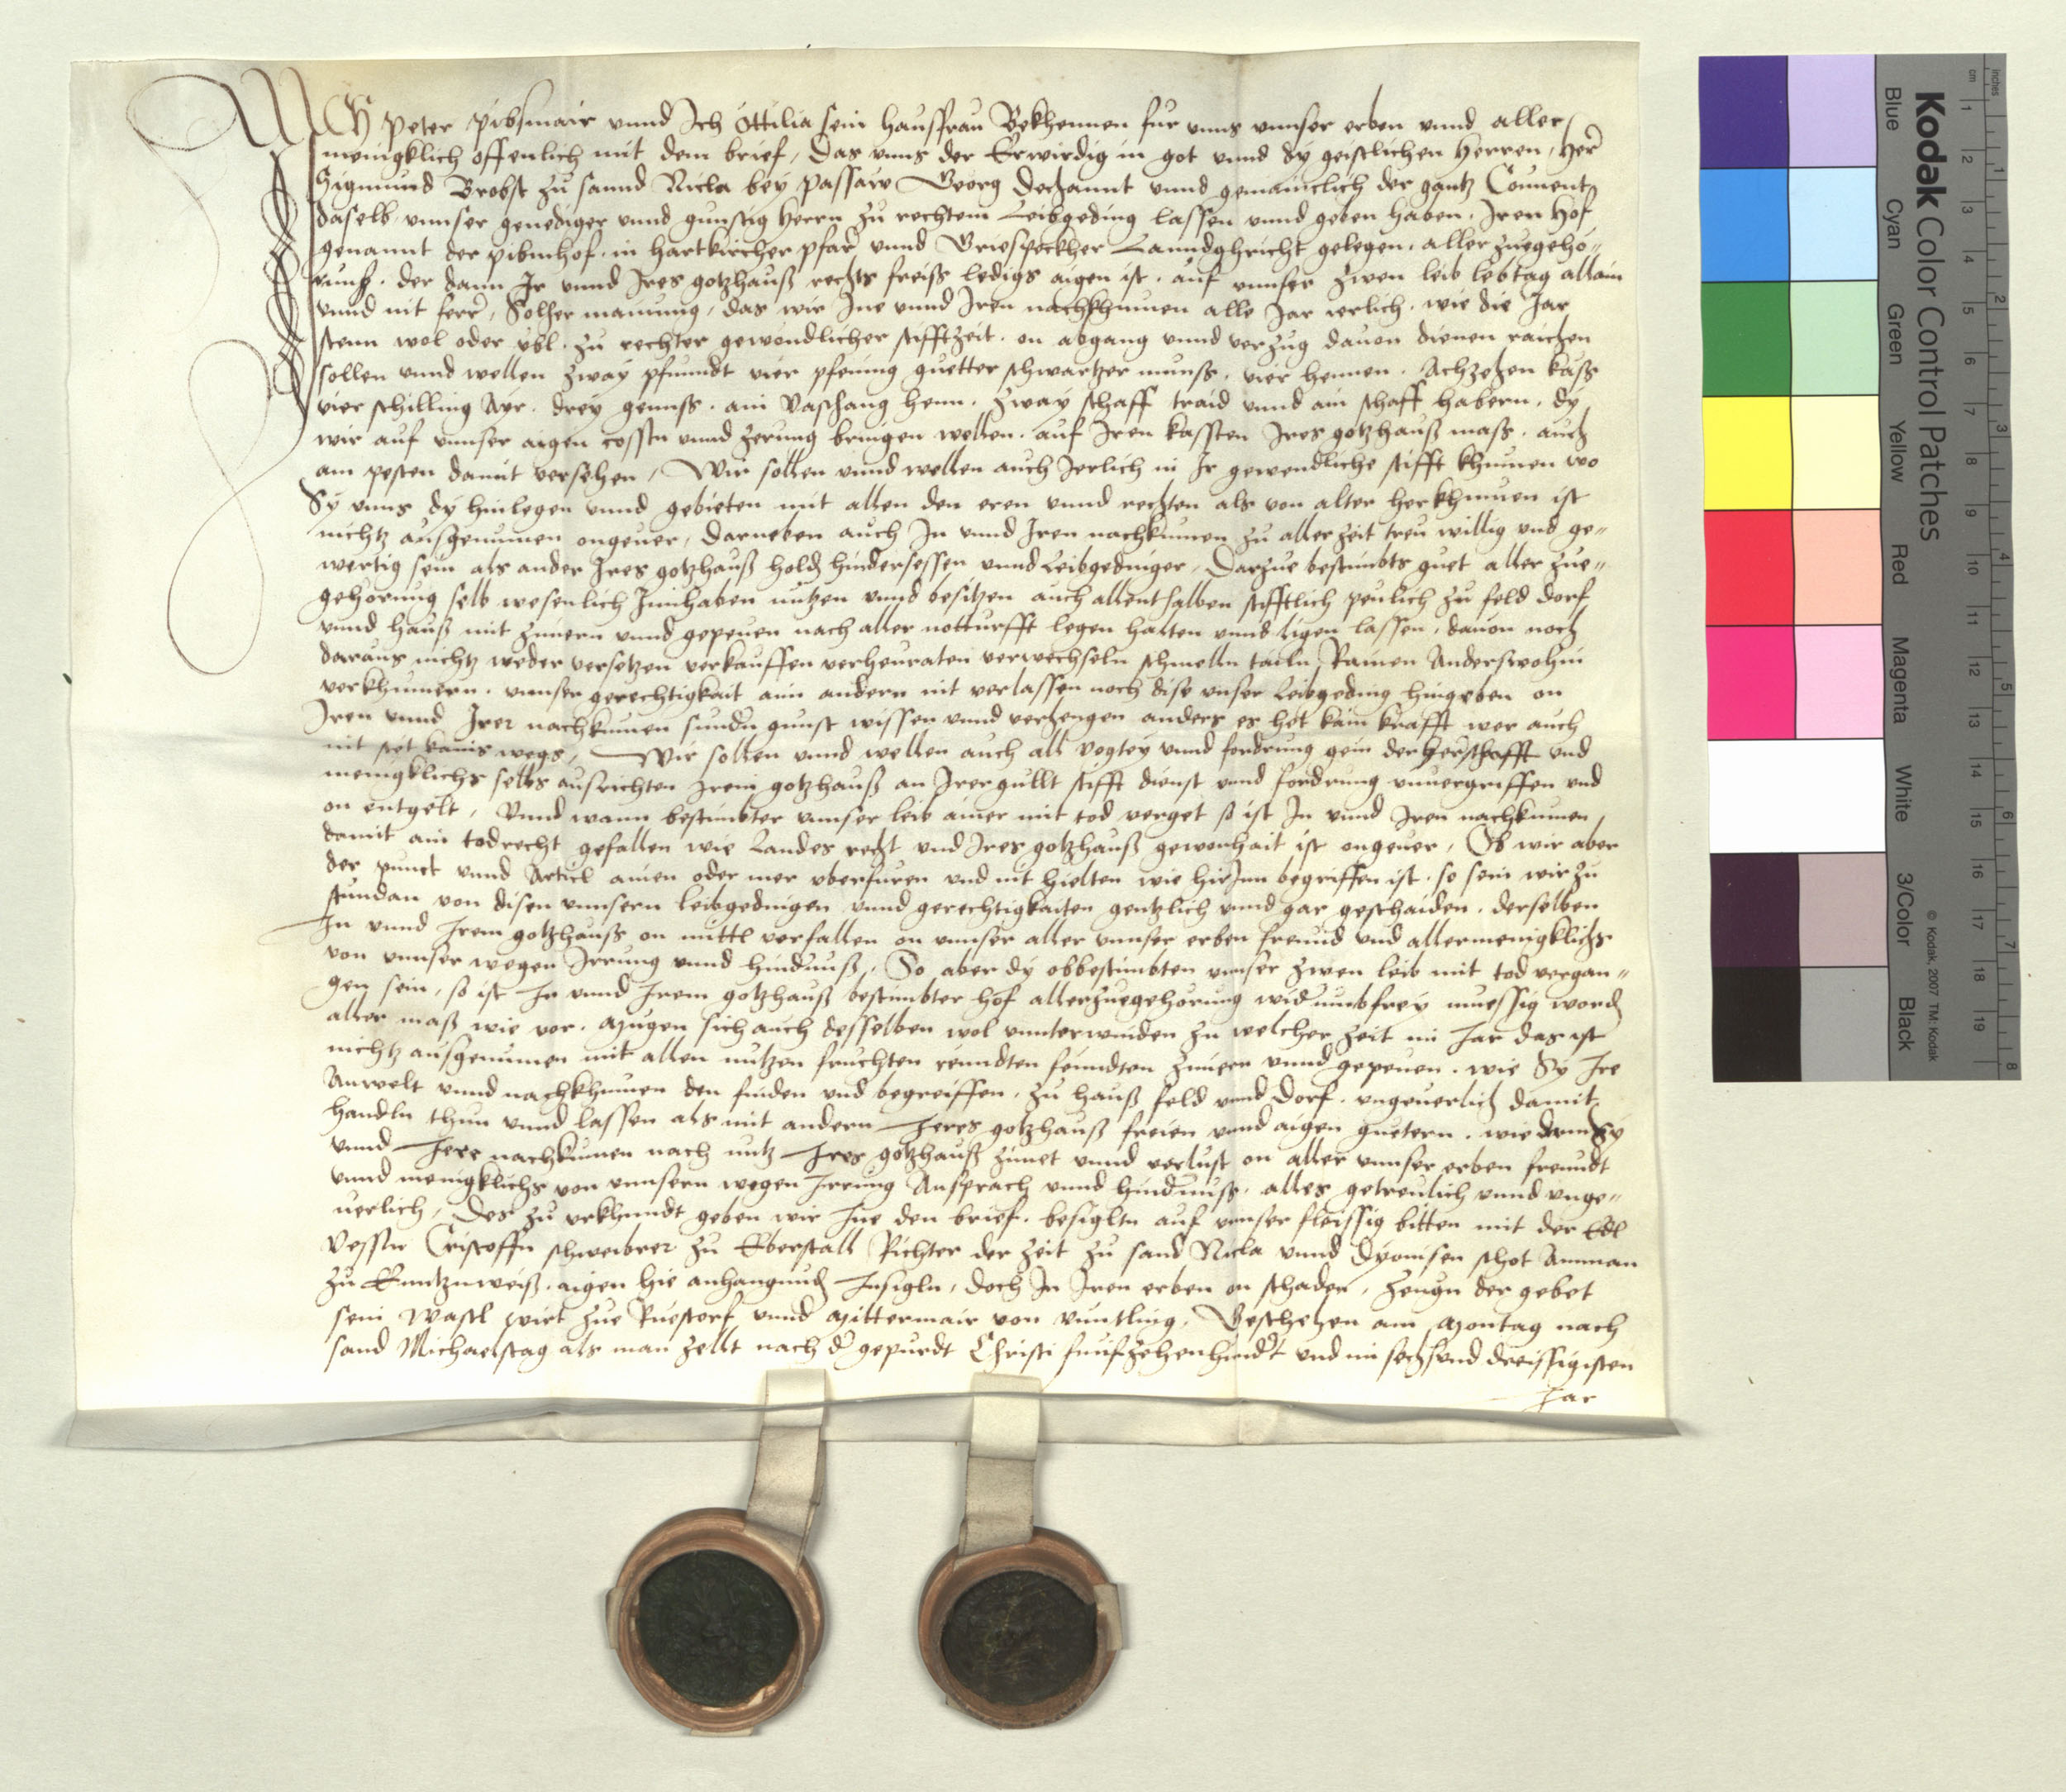 ICH Peter pibfmair unnd Ich Ottilia sein hausfrau Bekhennen fur unns unnser erben unnd aller
menigklich offenlich mit dem brief, Das unns der Erwirdig in got unnd dy geistlichen Herren, Her
Sigmund Brobst zu sannd Nicla bey passaw Georg Dechannt unnd gemaincklich der gantz Convent
daselb unnser genediger unnd gunstig Herrn zu rechtem Leibgeding lassen unnd geben haben, Iren Hof
genannt der pibmhof, in hartkircher pfarr unnd Griespeckher Lanndghricht gelegen, aller zuegeho-
rung, der dann Ir unnd Ires gotzhauß rechts freiss ledigs aigen ist, auf unnser zwen leib lebtag allain
unnd nit ferr, Solher mainung, das wir Ine unnd Iren nachkhumen alle Jar ierlich, wie die Jar
stenn wol oder ubl, zu rechter gewondlicher stifftzeit, on abgang unnd verzug davon dienen raichen
sollen unnd wellen zway pfunndt vier pfening guetter schwartzer munss, vier hennen, Achzehen käss
vier schilling Ayr, drey genns, ain Vaschang henn, zway schaff traid unnd ain schaff habern, dy
wir auf unnser aigen cossten unnd zerung bringen wellen, auf Iren kassten Ires gotzhauß mass, auch
am pesten damit versehen, Wir sollen unnd wellen auch Jerlich in Ir gewendliche stifft khumen wo
Sy unns dy hinlegen unnd gebieten mit allen den eren unnd rechten als von alter herkhumen ist
nichtz ausgenumen ongever, Darneben auch In unnd Iren nachkumen zu aller zeit treu willig und ge-
wertig sein als ander Ires gotzhauß hold hindersessen unnd Leibgedinger, Darzue bestimbts guet aller zue-
gehorung selb wesenlich Innhaben nutzen unnd besitzen auch allenthalben stifftlich peulich zu feld dorf
unnd hauß mit zimern unnd gepeuen nach aller notturfft legen halten unnd ligen lassen, davon noch
daraus nichtz weder versetzen verkauffen verheuraten verwechseln schmelln tailn Rainen Anderswohin
verkhumern, unnser gerechtigkait aim andern nit verlassen noch dise unser Leibgeding hingeben on
Iren unnd Irer nachkumen sundern gunst wissen unnd verhengen anders es het kain krafft wer auch
nit stet kains wegs, Wir sollen unnd wellen auch all vogtey unnd fordrung gein der herschafft und
menigklichs selbs ausrichten Irem gotzhauß an Irer gullt stifft dienst unnd fordrung unvergriffen und
on entgelt, Unnd wann bestimbter unnser leib ainer mit tod verget so ist In unnd Iren nachkumen
damit ain todrecht gefallen wie Landes recht und Ires gotzhauß gewonhait ist ongever, Ob wir aber
der punct unnd Articl ainen oder mer uberfuren und nit hielten wie hieInn begriffen ist, so sein wir zu
stundan von disen unnsern leibgedingen unnd gerechtigkaiten gentzlich unnd gar geschaiden, derselben
In unnd Irem gotzhauß on mittl verfallen on unnser aller unnser erben freund und allermenigklichs
von unnser wegen Irrung unnd hindnuß, So aber dy obbestimbten unnser zwen leib mit tod vergan-
gen sein, so ist In unnd Irem gotzhauß bestimbter hof aller zuegehorung widumbfrey muessig word
aller maß wie vor, Mugen sich auch desselben wol unnterwinden zu welcher zeit im Jar das ist
nichtz ausgenumen mit allen nutzen fruchten renndten fenndten zimern unnd gepeuen, wie Sy Ire
Anwelt unnd nachkhumen den finden und begreiffen, zu hauß feld unnd Dorf, ungeverlich damit
handln thun unnd lassen als mit andern Ires gotzhauß freien unnd aigen guetern, wie dann Sy
unnd Ire nachkumen nach nutz Ires gotzhauß zimet unnd verlust on aller unnser erben freundt
unnd menigklichs von unnsern wegen Irrung Ansprach unnd hindnuß, alles getreulich unnd unge-
verlich, Des zu urkhundt geben wir Ine den brief, besigltn auf unnser fleissig bitten mit der Edl
Vesstn Cristoffn schweibrer zu Eberstall Richter der zeit zu sand Nicla unnd Dyonisen schot Amman
zu Kuntznweiß, aigen hie anhangundn Insigln, doch In Iren erben on schaden, Zeugn der gebet
sein Wastl wirt zue Ruestorf unnd Mittermair von Runtling, Geschehen am Montag nach
sand Michaelstag als man zellt nach der gepurdt Christi funfzehenhundert und im sechsund dreissigisten
Jar
Kodak Color Control Patches
Blue Cyan Green Yellow Red Magenta White 3/Color Black
© Kodak, 2007 TM: Kodak
cm 1 2 3 4 5 6 7 8 9 10 11 12 13 14 15 16 17 18 19
inches 1 2 3 4 5 6 7 8